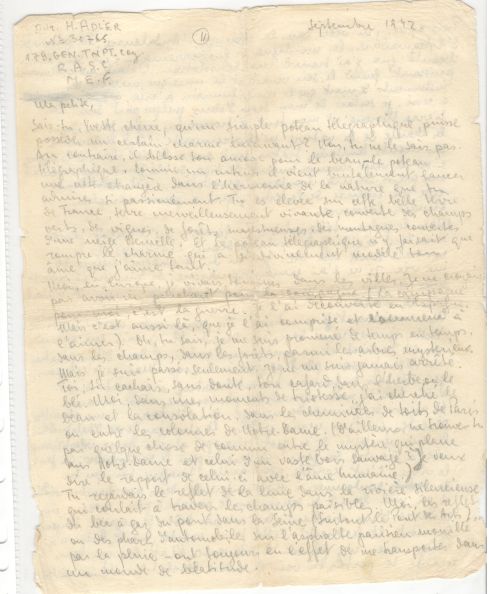 Dvr. H. ADLER
178. GEN. TNPT. Coy
R.A.S.C.
M.E.F.
Septembre 1942.
Ma petite,
Sais-tu, Yvette chérie, qu'un simple poteau télégraphique puisse
posséder un certain charme émouvant? Non, tu ne le sais pas.
Au contraire, il blesse ton amour pour le beau, le poteau
télégraphique, comme un intrus il vient brutalement
dans l'harmonie de la nature que tu
aimes si passionnément. Tu es élevée sur cette belle terre
de France, terre merveilleusement vivante, couverte des champs
verts, des vignes, de forêts majestueuses, des montagnes couvertes
d'une neige éternelle, et le poteau télégraphique n'y faisait que
rompre le charme qui a si divinement modelé ton
âme que j'aime tant.
Moi, en Europe, je vivais toujours dans les villes. Je ne
pas
pour moi, c'est la guerre. Je l'ai découverte
Mais c'est aussi là, que je l'ai comprise et commencé à
l'aimer). Oh, tu sais, je me suis promené de temps en temps
dans les champs, dans les forêts, parmi les arbres mystérieux.
Mais je suis passé seulement, je ne me suis jamais arrêté.
Toi, tu cachais, sans doute, ton cafard dans l'herbe ou le
blé. Moi, dans mes moments de tristesse, j'ai cherché le
beau et la consolation dans les cheminées de toits de Paris
ou entre les colonnes de Notre-Dame. (D'ailleurs, ne trouves-tu
pas quelque chose de commun entre le mystère qui plane
dans Notre-Dame et celui d'un vaste bois sauvage? Je veux
dire le rapport de celui-ci avec l'âme humaine.)
Tu regardais le reflet de la lune dans la rivière silencieuse
qui coulait à travers les champs paisibles. Moi, les reflets
du bec à gaz du pont dans la Seine (surtout le Pont des Arts)
ou des phares d'automobile sur l'asphalte parisien mouillé
par la pluie - ont toujours eu l'effet de me transporter dans
un monde de béatitude.